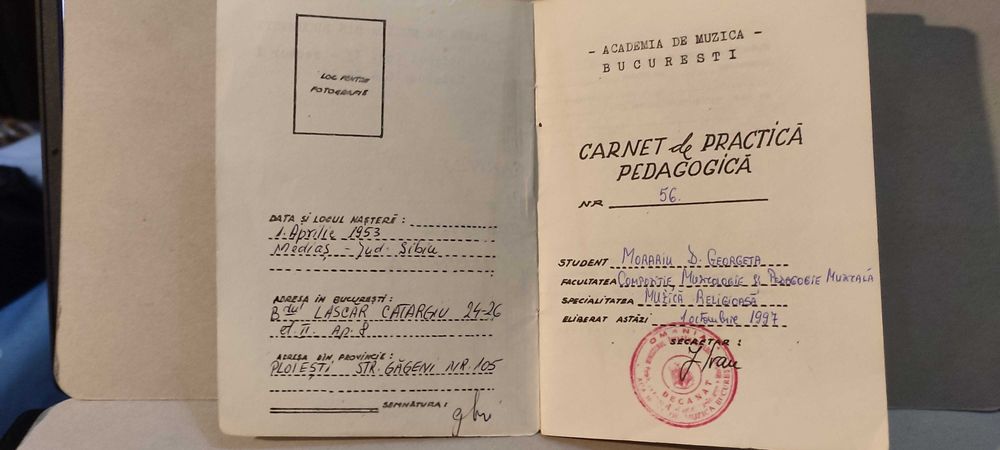 LOC PENTRU
FOTOGRAFIE
DATA ȘI LOCUL NAȘTERE :
1. Aprilie 1953
Mediaș - Jud. Sibiu
ADRESA IN BUCUREȘTI :
Bdul LASCĂR CATARGIU 24-26
et. II. ap. 8
ADRESA DIN PROVINCIE :
PLOIEȘTI STR. GĂGENI NR. 105
SEMNĂTURA :
- ACADEMIA DE MUZICA -
BUCURESTI
CARNET de PRACTICĂ
PEDAGOGICĂ
NR 56.
STUDENT MORARIU D. GEORGETA
FACULTATEA COMPOZIȚIE, MUZICOLOGIE ȘI PEDAGOGIE MUZICALĂ
SPECIALITATEA MUZICĂ RELIGIOASĂ
ELIBERAT ASTĂZI 1 octombrie 1997
SECRETAR :
ROMANIA
DECANAT
MUZICA BUCUREȘTI